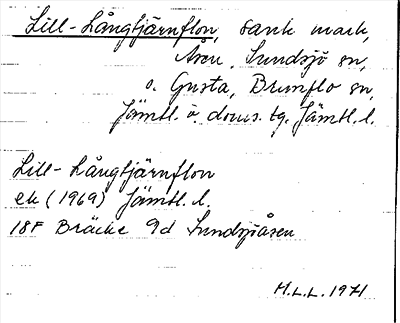 Lill-Långtjärnflon, sank mark,
Åsen, Sundsjö sn,
o. Gusta, Brunflo sn,
Jämtl. ö. doms. tg. Jämtl. l.
Lill-Långtjärnflon
ek (1969) Jämtl. l.
18F Bräcke 9d Sundsjöåsen
H.L.L. 1971